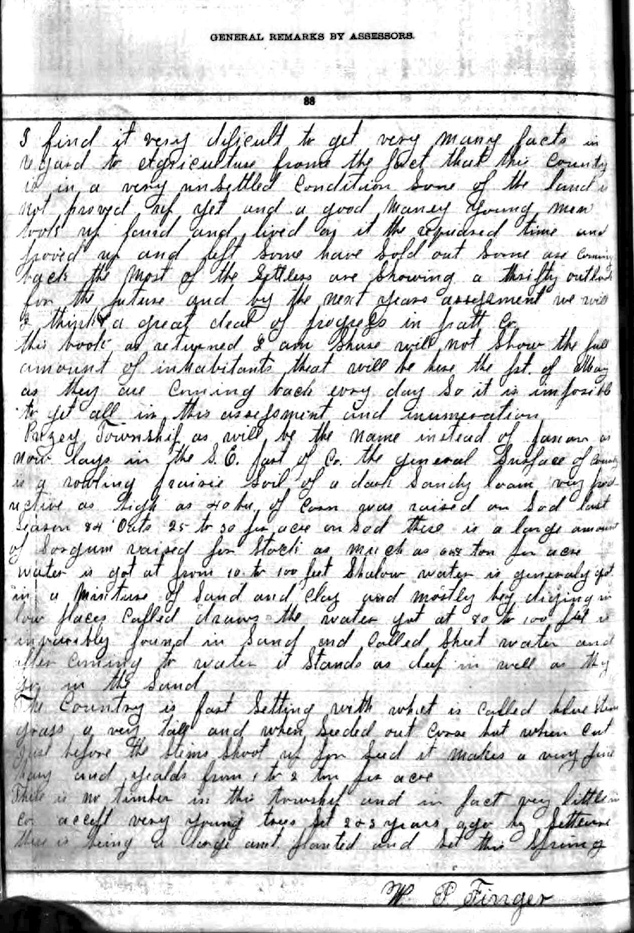 GENERAL REMARKS BY ASSESSORS.
88
I find it very dificult to get very many facts in
regard to Agriculture from the fact that this County
is in a very unsettled condition some of the land is
not proved up yet and a good maney young men
took up land and lived on it the required time and
proved up and left some have sold out some are coming
back the most of the settlers are showing a thrifty outlook
for the future and by the next years assessment we will
I think a great deal of progress in pratt Co.
this book as returned I am shure will not show the full
amount of inhabitants that will be here the 1st. of May
as they are coming back evry day so it is imposible
to get all in this assessment and inumeration
Township as will be the name instead of as
now lays in the S.E. part of Co. the general surface of County
is a rowling prairie soil of a dark sandy loam very prod
uctive as high as 40 bu. of corn was raised on sod last
season 84 Oats 25 to 30 per acre on sod there is a large amount
of sorgum raised for stock as much as ton per acre
water is got at from 10 to 100 feet shalow water is generaly got
in a mixture of sand and clay and mostly by diging in
low places called draws the water got at 80 to 100 feet is
invariably found in sand and called sheet water and
after coming to water it stands as deep in well as they
go in the sand
The Country is fast setting with what is called blue stem
grass a very tall and when seeded out corse but when cut
just before the stems shoot up for seed it makes a very fine
hay and yealds from 1 to 2 ton per acre
There is no timber in this township and in fact very little in
co. accept very young trees set 2 & 3 years ago by setlers
there is being a large amt planted and set this spring
W. P. Finger